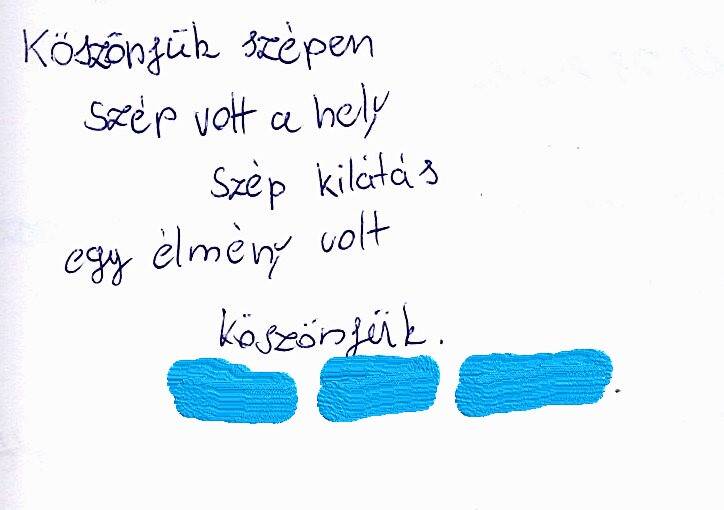 Köszönjük szépen
Szép volt a hely
Szép kilátás
egy élmény volt
köszönjük.